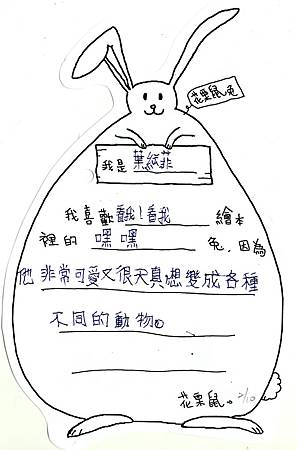 花栗鼠兔
我是葉紜菲
我喜歡看我!看我 繪本
裡的 嘿嘿 兔,因為
他非常可愛又很天真想變成各種
不同的動物。
花栗鼠。2/10